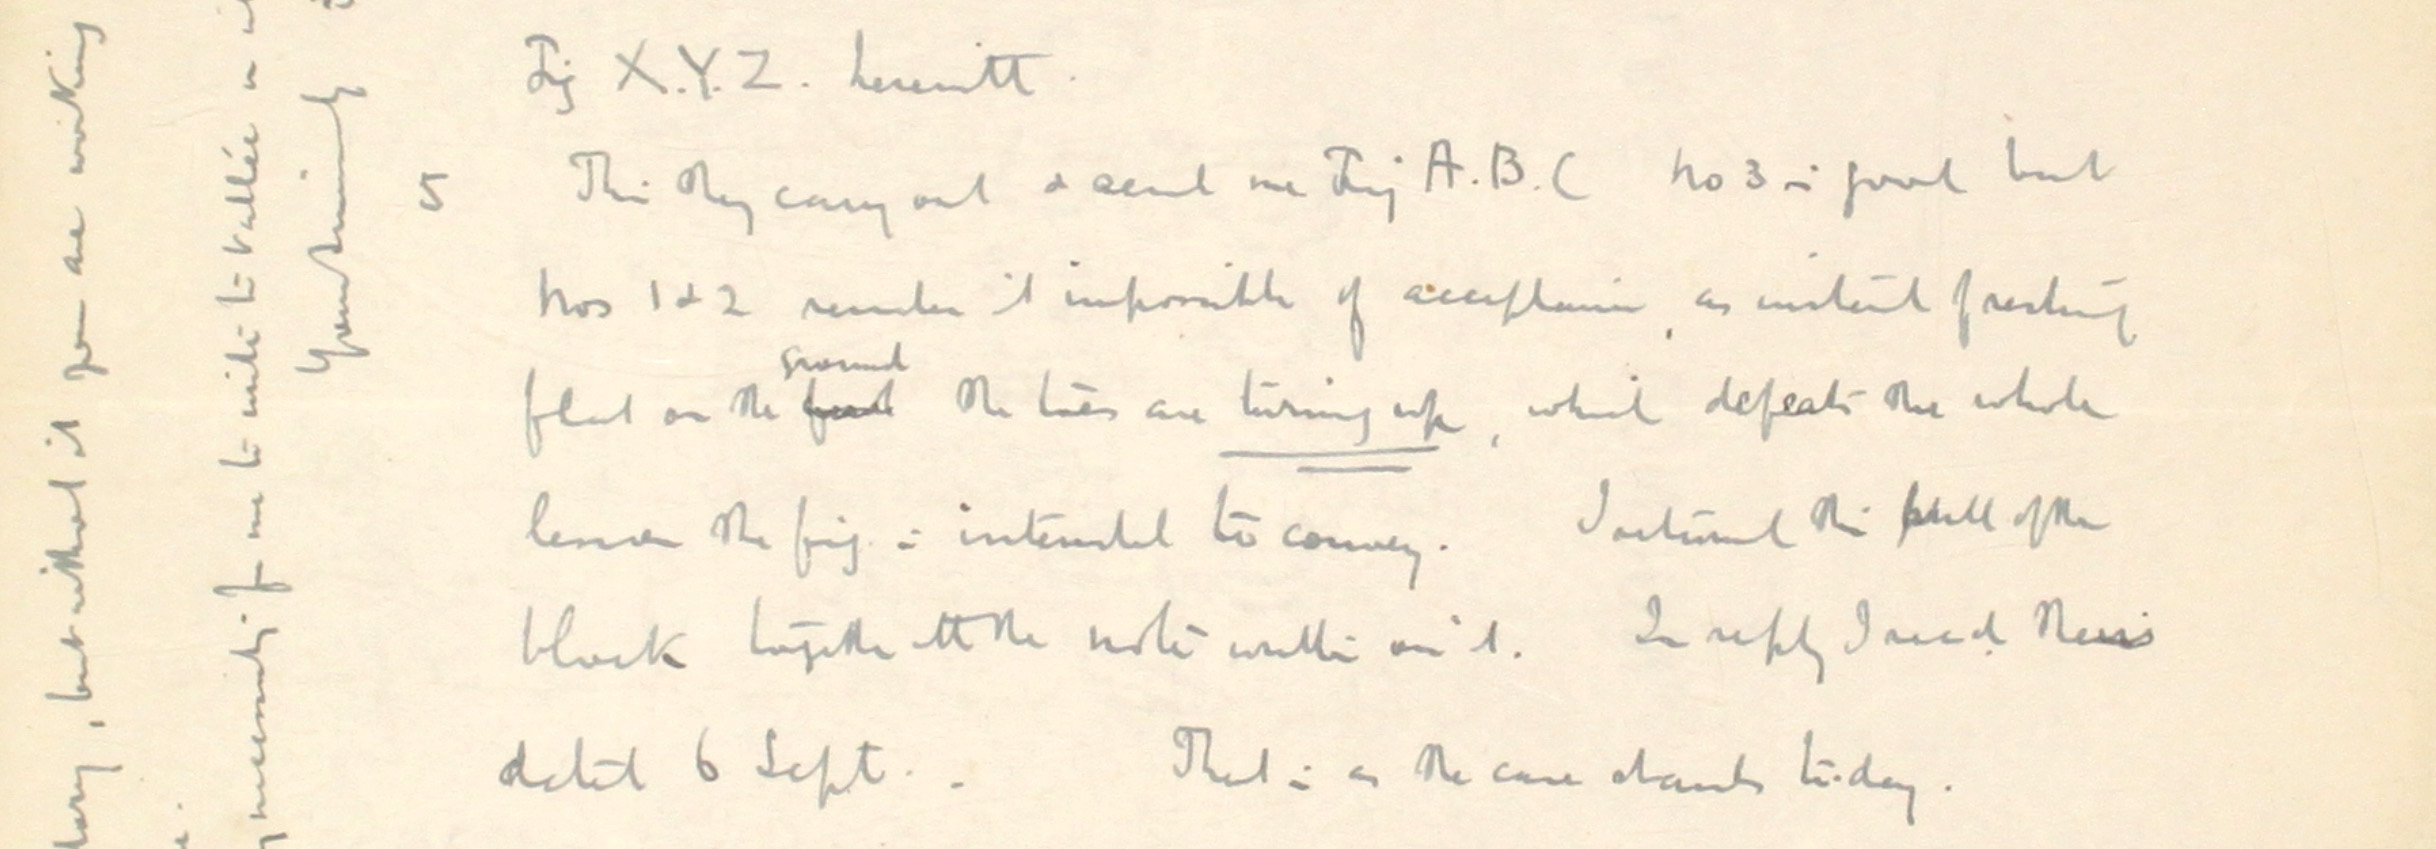 Fig X.Y.Z. herewith.
5 This they carry out & send me Fig A.B.C No 3 is good but
Nos 1 & 2 render it impossible of acceptance, as instead of resting
ground
flat on the the toes are turning up, which defeats the whole
lesson the fig. is intended to convey. I returned this pull of the
block together with the note written on it. In reply I recd. theirs
dated 6 Sept. . That is as the case stands to-day.
, but without it you are working
necessity for me to write to Vallée
Yours sincerely